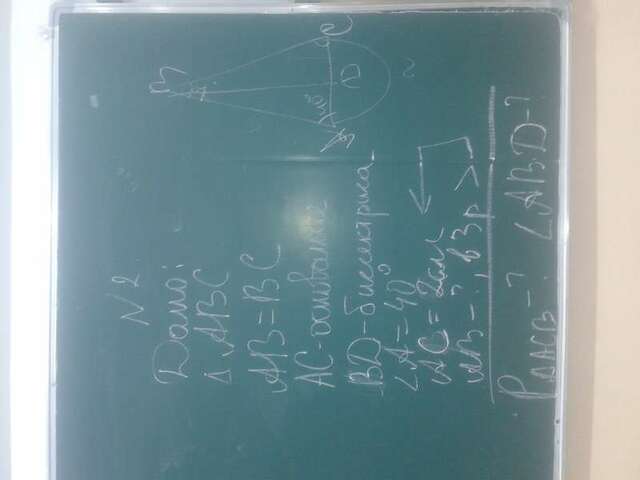 N2
Дано:
Δ ABC
AB=BC
AC-основание
BD-биссектриса
∠A=40°
AC=2см
AB-?, в 3р >
P ΔACB-? ∠ABD-?
B
A 40° D C